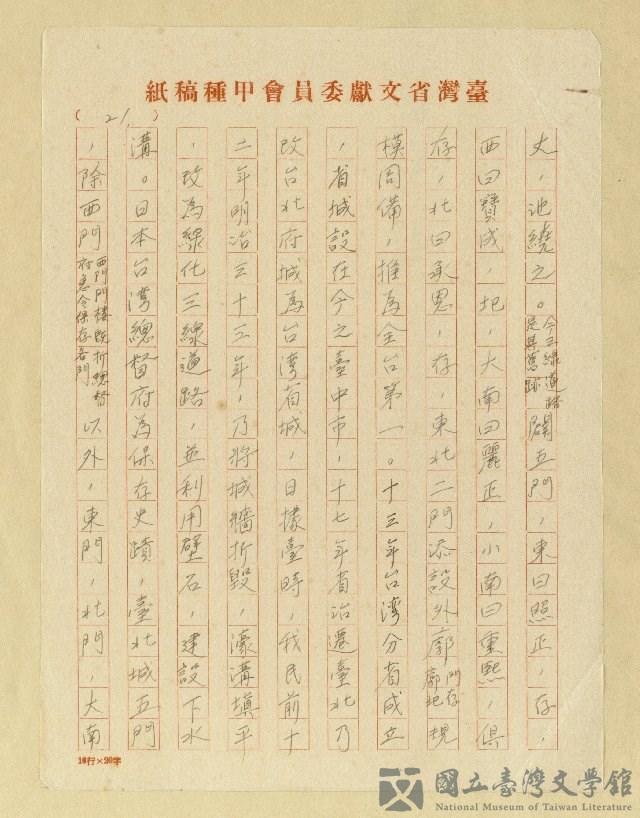 臺灣省文獻委員會甲種稿紙
( 21 )
丈，池繞之。今三線道路是其舊跡闢五門，東曰照正，存，
西曰寶成，圯，大南曰麗正，小南曰重熙，俱
存，北曰承恩，存，東北二門添設外廓門存廓圯規
模周備，推為全台第一。十三年台灣分省成立
，省城設在今之臺中市，十七年省治遷臺北乃
改台北府城為台灣省城，日據臺時，我民前十
二年明治三十三年，乃將城牆折毀，濠溝填平
，改為線化三線道路，並利用壁石，建設下水
溝。日本台灣總督府為保存史蹟，臺北城五門
，除西門西門門樓既折總督府急令保存各門以外，東門，北門，大南
10行×20字
國立臺灣文學館
National Museum of Taiwan Literature